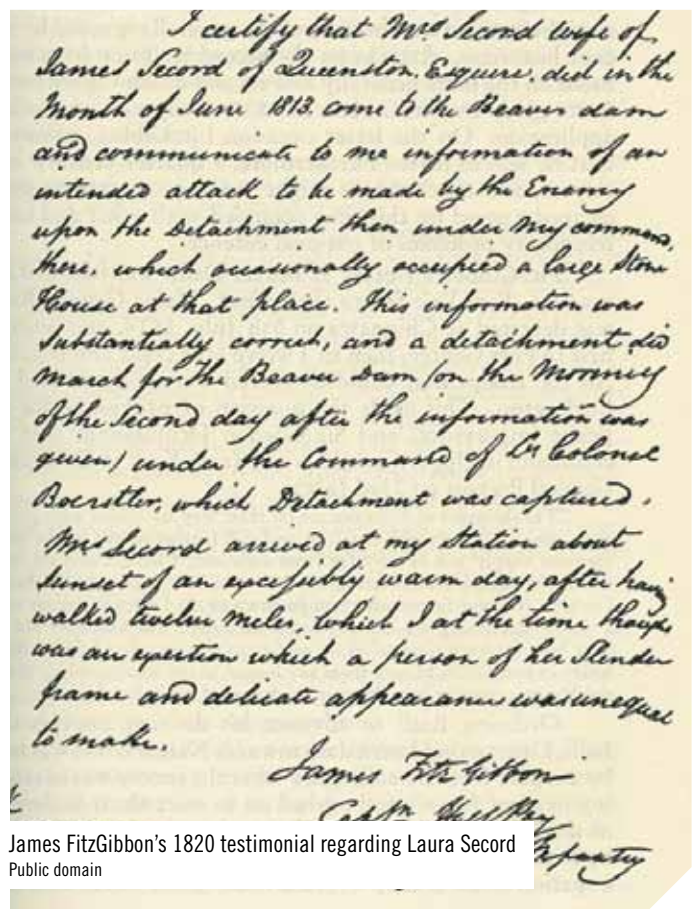 I certify that Mrs Secord wife of
James Secord of Queenston, Esquire, did in the
Month of June 1813. come to the Beaver dam
and communicate to me information of an
intended attack to be made by the Enemy
upon the Detachment then under my command,
there, which occasionally occupied a large Stone
House at that place. This information was
substantially correct, and a detachment did
march for the Beaver Dam (on the Morning
of the second day after the information was
given) under the Command of Lt Colonel
Boerstler, which Detachment was captured.
Mrs Secord arrived at my Station about
sunset of an excessibly warm day, after having
walked twelve miles, which I at the time thought
was an exertion which a person of her slender
frame and delicate appearance was unequal
to make.
James FitzGibbon
Captn Half Pay
James FitzGibbon's 1820 testimonial regarding Laura Secord
Infantry
Public domain